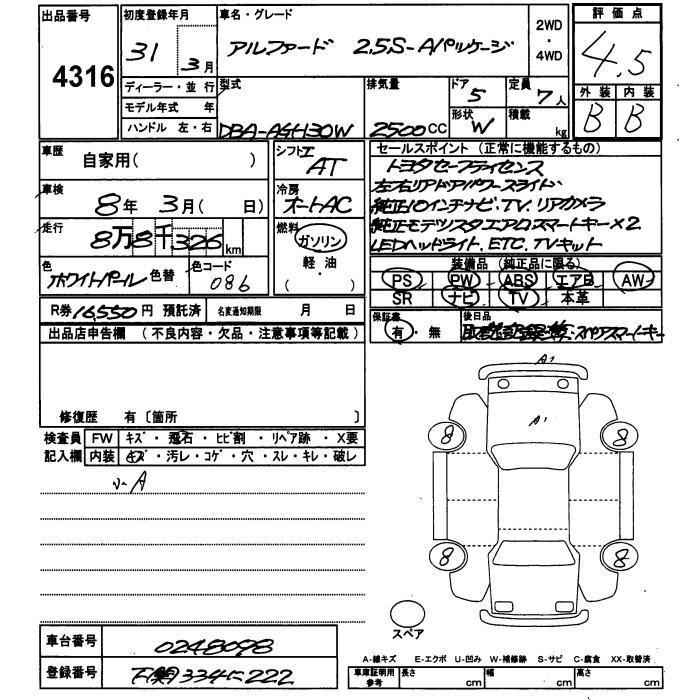 出品番号
4316
初度登録年月
31
3月
ディーラー・並行
モデル年式 年
ハンドル 左・右
車名・グレード
アルファード 2.5S-Aパッケージ
2WD
・
4WD
型式
DBA-AGH30W
排気量
2500CC
ドア
5
形状
W
定員
7人
積載
kg
評価点
4.5
外装 内装
B B
車歴
自家用( )
車検
8年 3月( 日)
走行
8万8千326km
色
ホワイトパール 色替
色コード
086
シフト
AT
冷房
オートAC
燃料
ガソリン
軽・油
( )
セールスポイント (正常に機能するもの)
トヨタセーフティセンス
左右リアドアパワースライド
純正10インチナビ.TV.リアカメラ
純正モデリスタエアロスマートキー×2
LEDヘッドライト.ETC.TVキット
装備品 (純正品に限る)
PS PW ABS エアB AW
SR ナビ TV 本革
R券16,550円 預託済
名変通知期限 月 日
保証書
有・無
後日品
取説記録簿.スペアスマートキー
出品店申告欄 (不良内容・欠品・注意事項等記載)
修復歴 有〔箇所 〕
検査員 FW キズ・飛石・ヒビ割・リペア跡・X要
記入欄 内装 キズ・汚レ・コゲ・穴・スレ・キレ・破レ
A1
A1
8 8
8 8
スペア
車台番号
0248098
登録番号
下関334に222
A-線キズ E-エクボ U-凹み W-補修跡 S-サビ C-腐食 XX-取替済
車庫証明用
参考
長さ cm
幅 cm
高さ cm